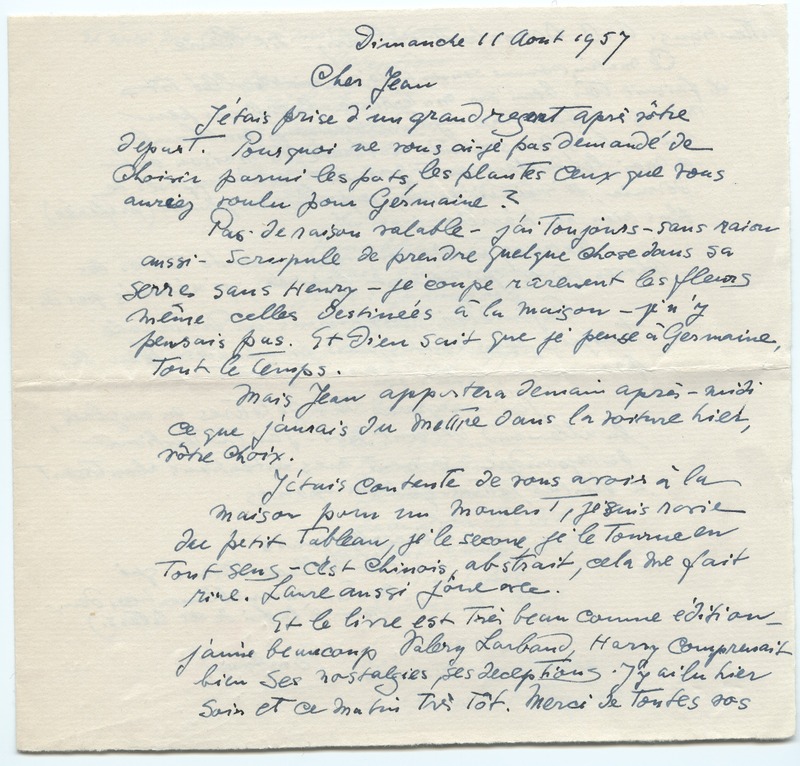 Dimanche 11 Aout 1957
Cher Jean
J'étais prise d'un grand regret après vôtre
depart. Pourquoi ne vous ai-je pas demandé de
choisir parmi les pots, les plantes ceux que vous
auriez voulu pour Germaine ?
Pas de raison valable – j'ai toujours – sans raison
aussi – scrupule de prendre quelque chose dans sa
serres sans Henry – je coupe rarement les fleurs
même celles destinées à la maison – je n'y
pensais pas. Et Dieu sait que je pense à Germaine,
tout le temps.
Mais Jean apportera demain après-midi
ce que j'aurais du mettre dans la voiture hier,
vôtre choix.
J'étais contente de vous avoir à la
maison pour un moment, je suis ravie
du petit tableau, je le secoue, je le tourne en
tout sens – c'est chinois, abstrait, cela me fait
rire. Laure aussi joue
Et le livre est très beau comme édition –
j'aime beaucoup Valery Larbaud, Harry comprenait
bien ses nostalgies ses deceptions. J'y ai lu hier
soir et ce matin très tôt. Merci de toutes vos